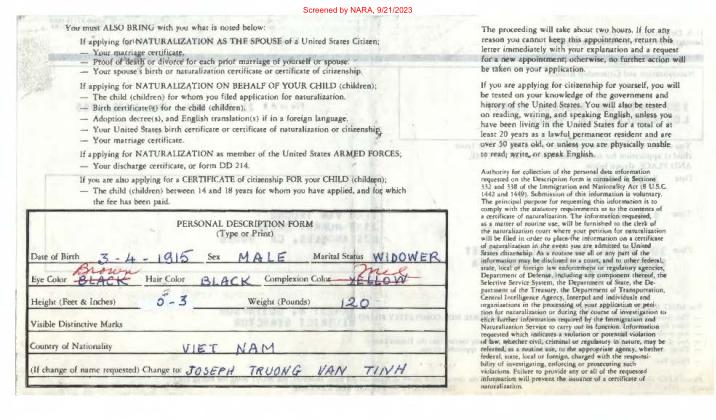 Screened by NARA, 9/21/2023
You must ALSO BRING with you what is noted below:
If applying for NATURALIZATION AS THE SPOUSE of a United States Citizen;
— Your marriage certificate.
— Proof of death or divorce for each prior marriage of yourself or spouse.
— Your spouse's birth or naturalization certificate or certificate of citizenship.
If applying for NATURALIZATION ON BEHALF OF YOUR CHILD (children);
— The child (children) for whom you filed application for naturalization.
— Birth certificate(s) for the child (children).
— Adoption decree(s), and English translation(s) if in a foreign language.
— Your United States birth certificate or certificate of naturalization or citizenship.
— Your marriage certificate.
If applying for NATURALIZATION as member of the United States ARMED FORCES;
— Your discharge certificate, or form DD 214.
If you are also applying for a CERTIFICATE of citizenship FOR your CHILD (children);
— The child (children) between 14 and 18 years for whom you have applied, and for which
the fee has been paid.
PERSONAL DESCRIPTION FORM
(Type or Print)
Date of Birth 3-4-1915 Sex MALE Marital Status WIDOWER
Brown Med
Eye Color BLACK Hair Color BLACK Complexion Color YELLOW
Height (Feet & Inches) 5-3 Weight (Pounds) 120
Visible Distinctive Marks
Country of Nationality VIET NAM
(If change of name requested) Change to: JOSEPH TRUONG VAN TINH
The proceeding will take about two hours. If for any
reason you cannot keep this appointment, return this
letter immediately with your explanation and a request
for a new appointment; otherwise, no further action will
be taken on your application.
If you are applying for citizenship for yourself, you will
be tested on your knowledge of the government and
history of the United States. You will also be tested
on reading, writing, and speaking English, unless you
have been living in the United States for a total of at
least 20 years as a lawful permanent resident and are
over 50 years old, or unless you are physically unable
to read, write, or speak English.
Authority for collection of the personal data information
requested on the Description form is contained in Sections
332 and 338 of the Immigration and Nationality Act (8 U.S.C.
1442 and 1449). Submission of this information is voluntary.
The principal purpose for requesting this information is to
comply with the statutory requirements as to the contents of
a certificate of naturalization. The information requested,
as a matter of routine use, will be furnished to the clerk of
the naturalization court where your petition for naturalization
will be filed in order to place the information on a certificate
of naturalization in the event you are admitted to United
States citizenship. As a routine use all or any part of the
information may be disclosed to a court, and to other federal,
state, local or foreign law enforcement or regulatory agencies,
Department of Defense, including any component thereof, the
Selective Service System, the Department of State, the De-
partment of the Treasury, the Department of Transportation,
Central Intelligence Agency, Interpol and individuals and
organizations in the processing of your application or peti-
tion for naturalization or during the course of investigation to
elicit further information required by the Immigration and
Naturalization Service to carry out its function. Information
requested which indicates a violation or potential violation
of law, whether civil, criminal or regulatory in nature, may be
referred, as a routine use, to the appropriate agency, whether
federal, state, local or foreign, charged with the responsi-
bility of investigating, enforcing or prosecuting such
violations. Failure to provide any or all of the requested
information will prevent the issuance of a certificate of
naturalization.